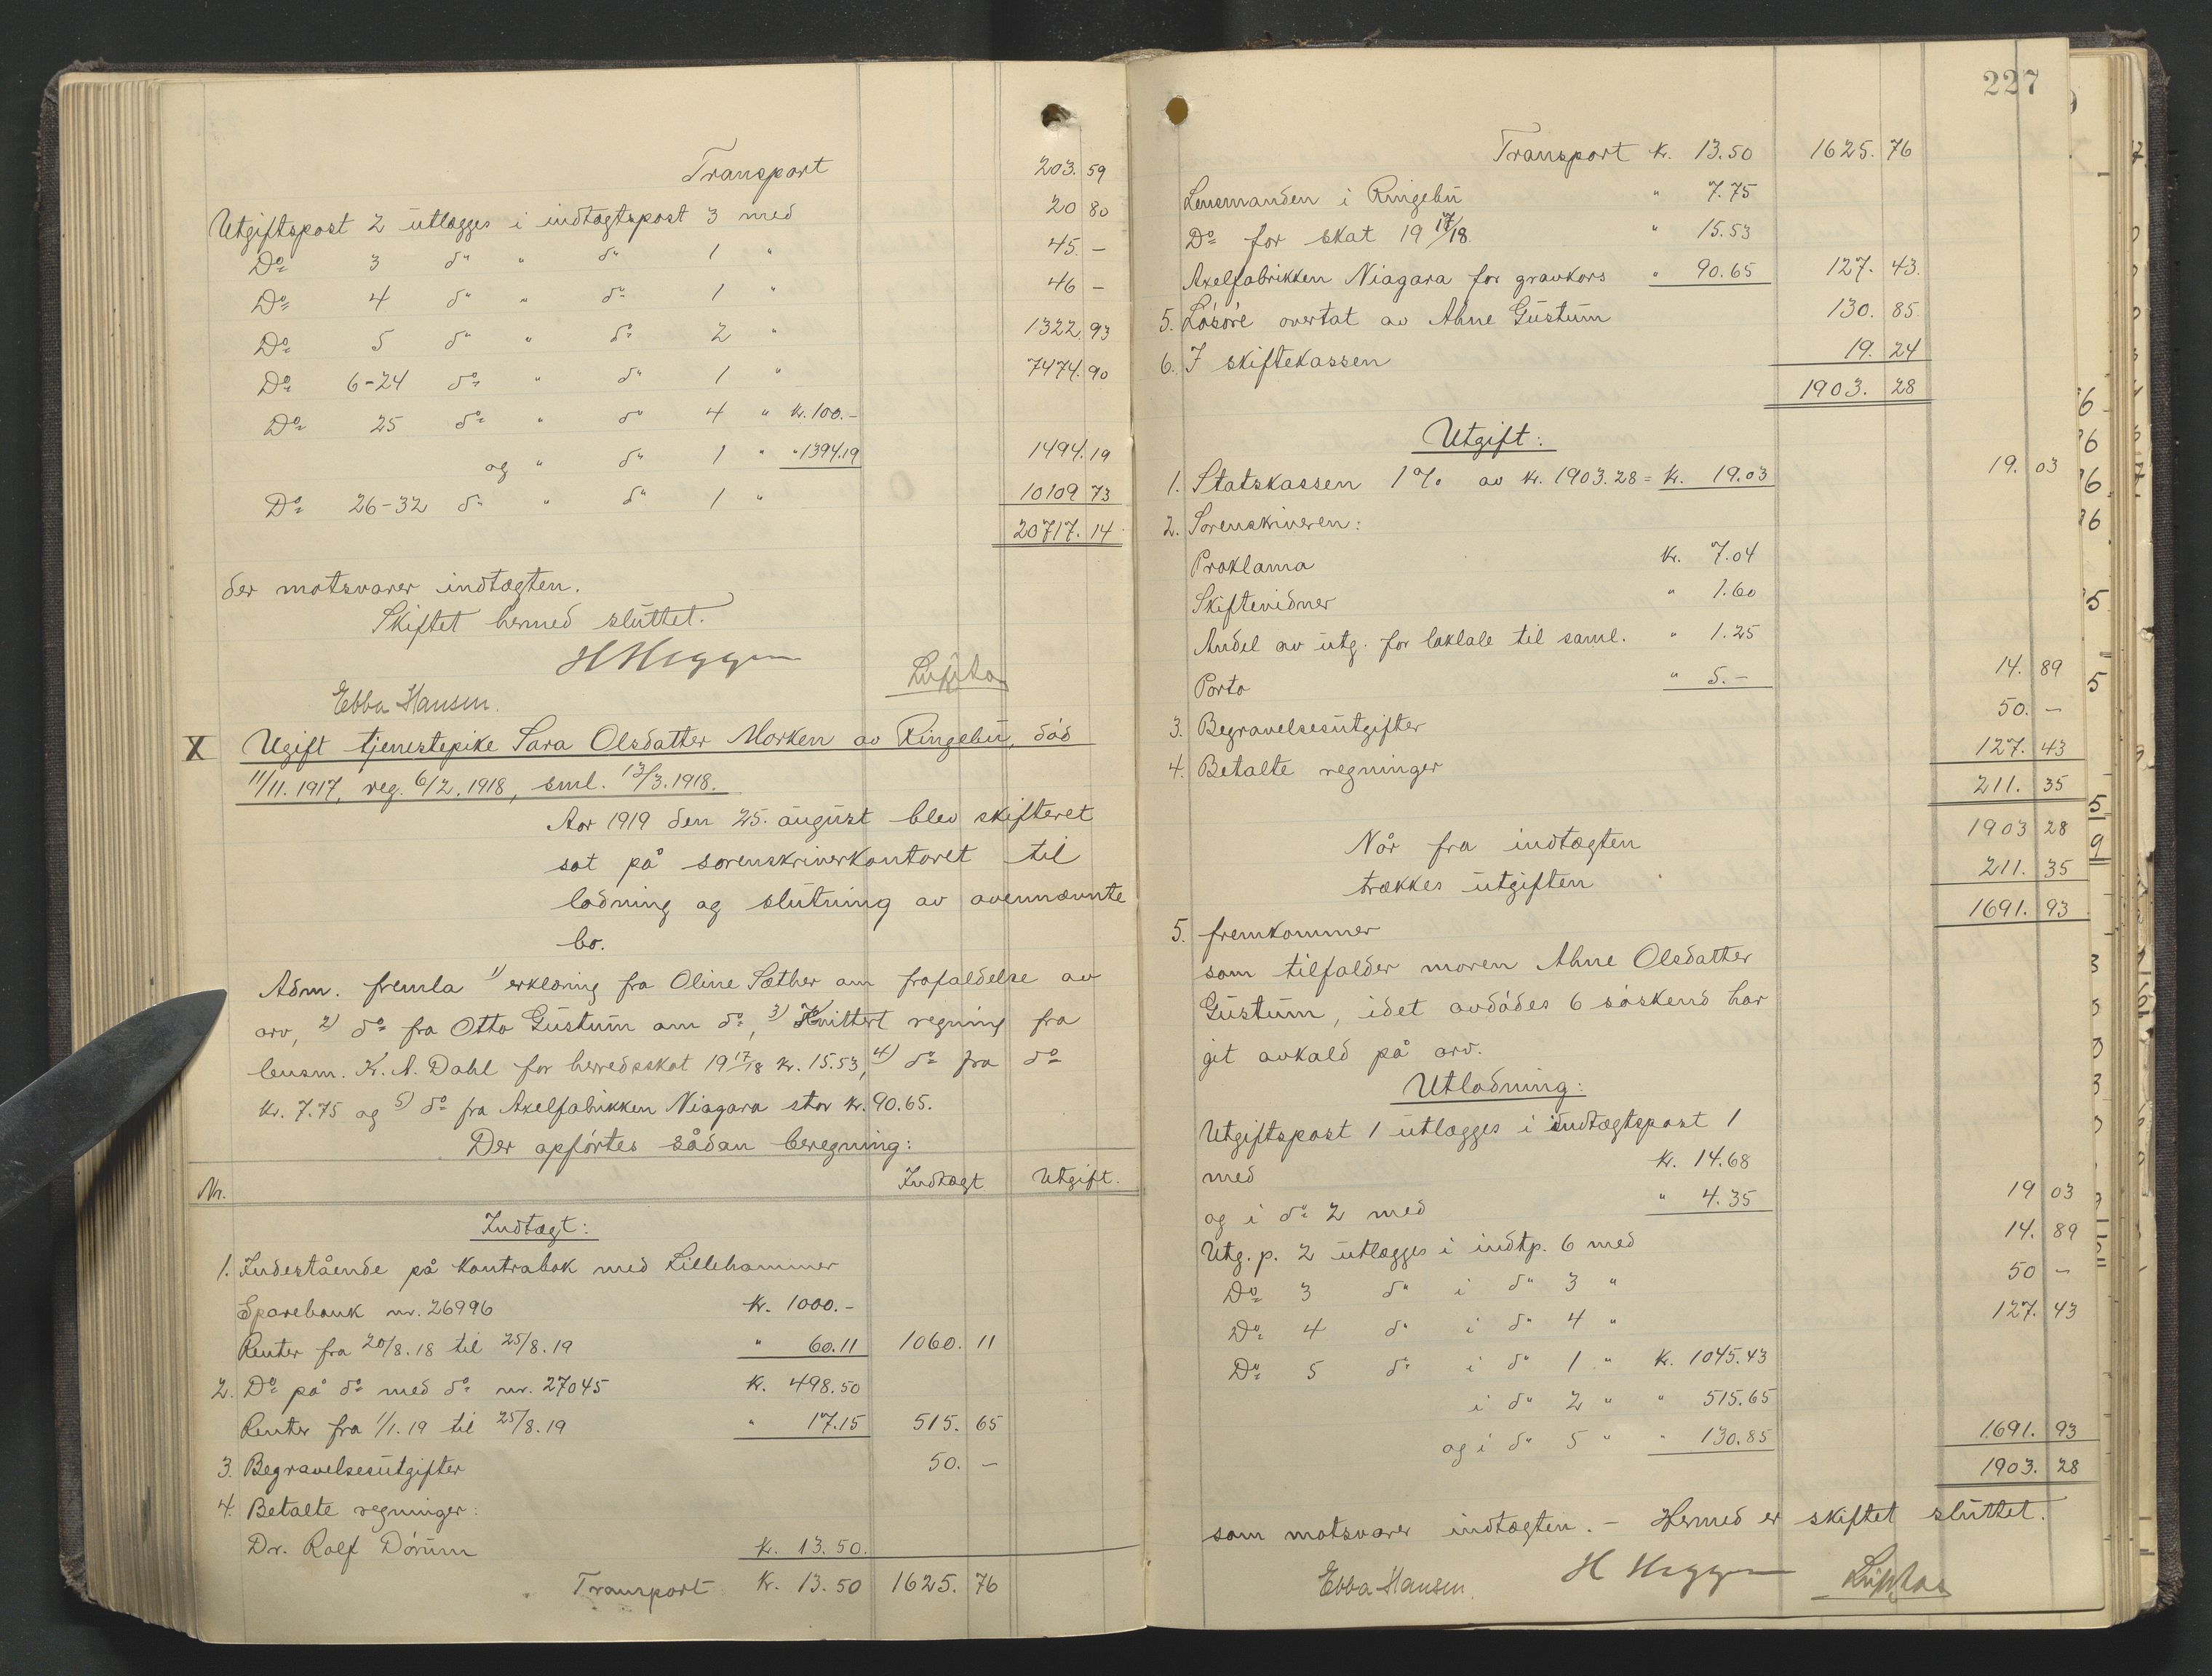 Transport 203. 59
Utgiftspost 2 utlægges i indtægtspost 3 med 20 80
Do 3 do " do 1 " 45. –
Do 4 do " do 1 " 46 –
Do 5 do " do 2 " 1322. 93
Do 6-24 do " do 1 " 7474. 90
Do 25 do " do 4 " Kr. 100.–
og " do 1 " " 1394.19 1494. 19
Do 26-32 do " do 1 " 10109 73
20717. 14
der motsvarer indtægten.
Skiftet hermed sluttet.
H Heggen
Ebba Hansen.
X Ugift tjenestepike Sara Olsdatter Morken av Ringebu, død
11/11. 1917, reg. 6/2. 1918, sml. 13/3. 1918.
Aar 1919 den 25. august blev skifteret
sat på sorenskriverkontoret til
lodning og slutning av ovennævnte
bo.
Adm. fremla 1) erklæring fra Oline Sæther om frafaldelse av
arv, 2) do fra Otto Gustum om do, 3) Kvittert regning fra
lensm. K. A. Dahl for herredsskat 19 17/18 kr. 15.53, 4) do fra do
kr. 7.75 og 5) do fra Axelfabrikken Niagara stor kr. 90.65.
Der opførtes sådan beregning:
Nr. Indtægt Utgift.
Indtægt:
1. Indestående på kontrabok med Lillehammer
Sparebank nr. 26996 kr. 1000.–
Renter fra 20/8. 18 til 25/8. 19 " 60.11 1060. 11
2. Do på do med do nr. 27045 Kr. 498.50
Renter fra 1/1. 19 til 25/8. 19 " 17.15 515. 65
3. Begravelsesutgifter 50. –
4. Betalte regninger:
Dr. Rolf Dørum kr. 13.50.
Transport Kr. 13.50 1625. 76
227
Transport Kr. 13.50 1625. 76
Lensmanden i Ringebu " 7.75
Do for skat 19 17/18 " 15.53
Axelfabrikken Niagara for gravkors " 90.65 127. 43.
5. Løsøre overtat av Ahne Gustum 130. 85
6. I skiftekassen 19. 24
1903. 28
Utgift:
1. Statskassen 1% av kr. 1903.28 = kr. 19.03 19. 03
2. Sorenskriveren:
Proklama Kr. 7.04
Skiftevidner " 1.60
Andel av utg. for loklale til saml. " 1.25
Porto " 5.– 14. 89
3. Begravelsesutgifter 50. –
4. Betalte regninger 127. 43
211. 35
Når fra indtægten 1903 28
trækkes utgiften 211. 35
5. fremkommer 1691. 93
som tilfalder moren Ahne Olsdatter
Gustum, idet avdødes 6 søskend har
git avkald på arv.
Utlodning:
Utgiftspost 1 utlægges i indtægtspost 1
med Kr. 14.68
og i do 2 med " 4.35 19 03
Utg. p. 2 utlægges i indtp. 6 med 14. 89
Do 3 do i do 3 " 50 –
Do 4 do i do 4 " 127. 43
Do 5 do i do 1 " Kr. 1045.43
i do 2 " " 515.65
og i do 5 " " 130.85 1691. 93
1903. 28
som motsvarer indtægten. – Hermed er skiftet sluttet.
Ebba Hansen. H Heggen